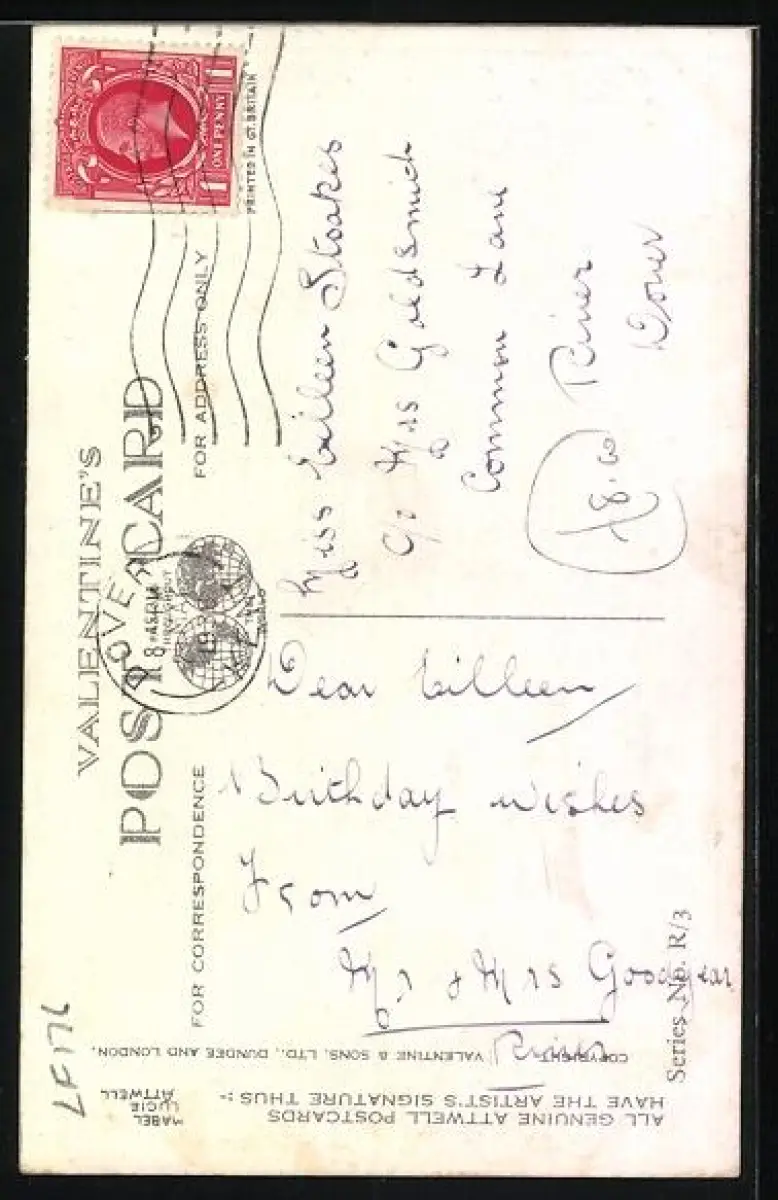 VALENTINE'S
POST CARD
FOR CORRESPONDENCE
FOR ADDRESS ONLY
PRINTED IN GT. BRITAIN
1 ONE PENNY 1
DOVER
Dear Eilleen
Birthday wishes
From
Mr & Mrs Goodyear
River
Miss Eilleen Stoakes
c/o Mrs Goldsmith
Common Lane
River
Dover
LF176
Series No. R/3
COPYRIGHT VALENTINE & SONS, LTD., DUNDEE AND LONDON.
ALL GENUINE ATTWELL POSTCARDS
HAVE THE ARTIST'S SIGNATURE THUS :-
MABEL
LUCIE
ATTWELL